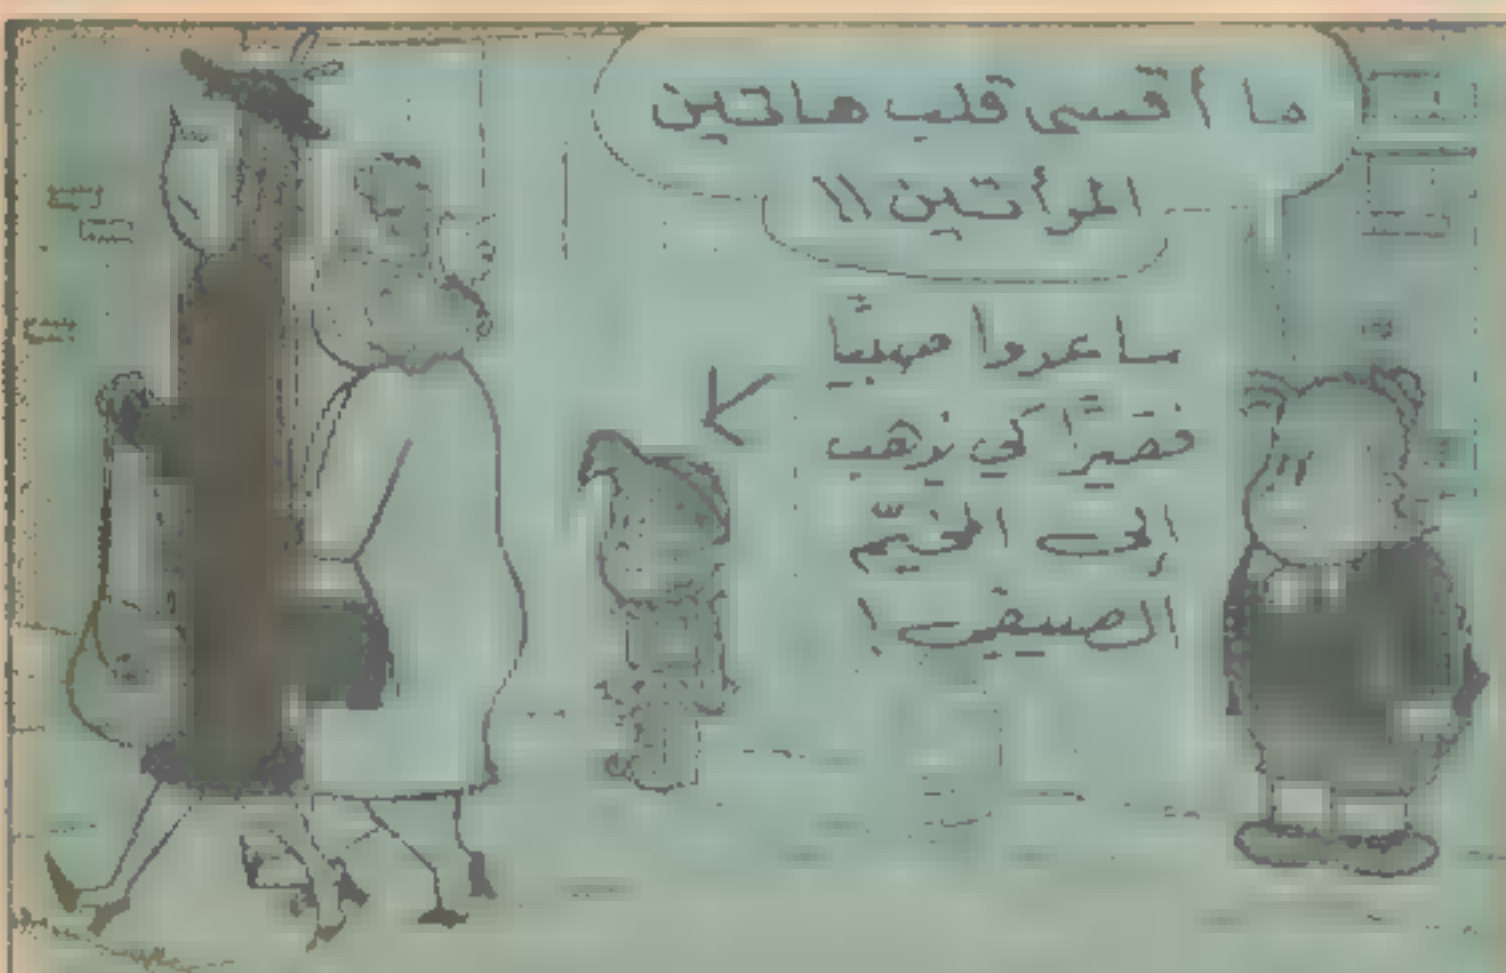 ما أقسى قلب هاتين
المرأتين !!
ساعدوا صبيًّا
فقيرًا كي يذهب
إلى المخيّم
الصيفي !